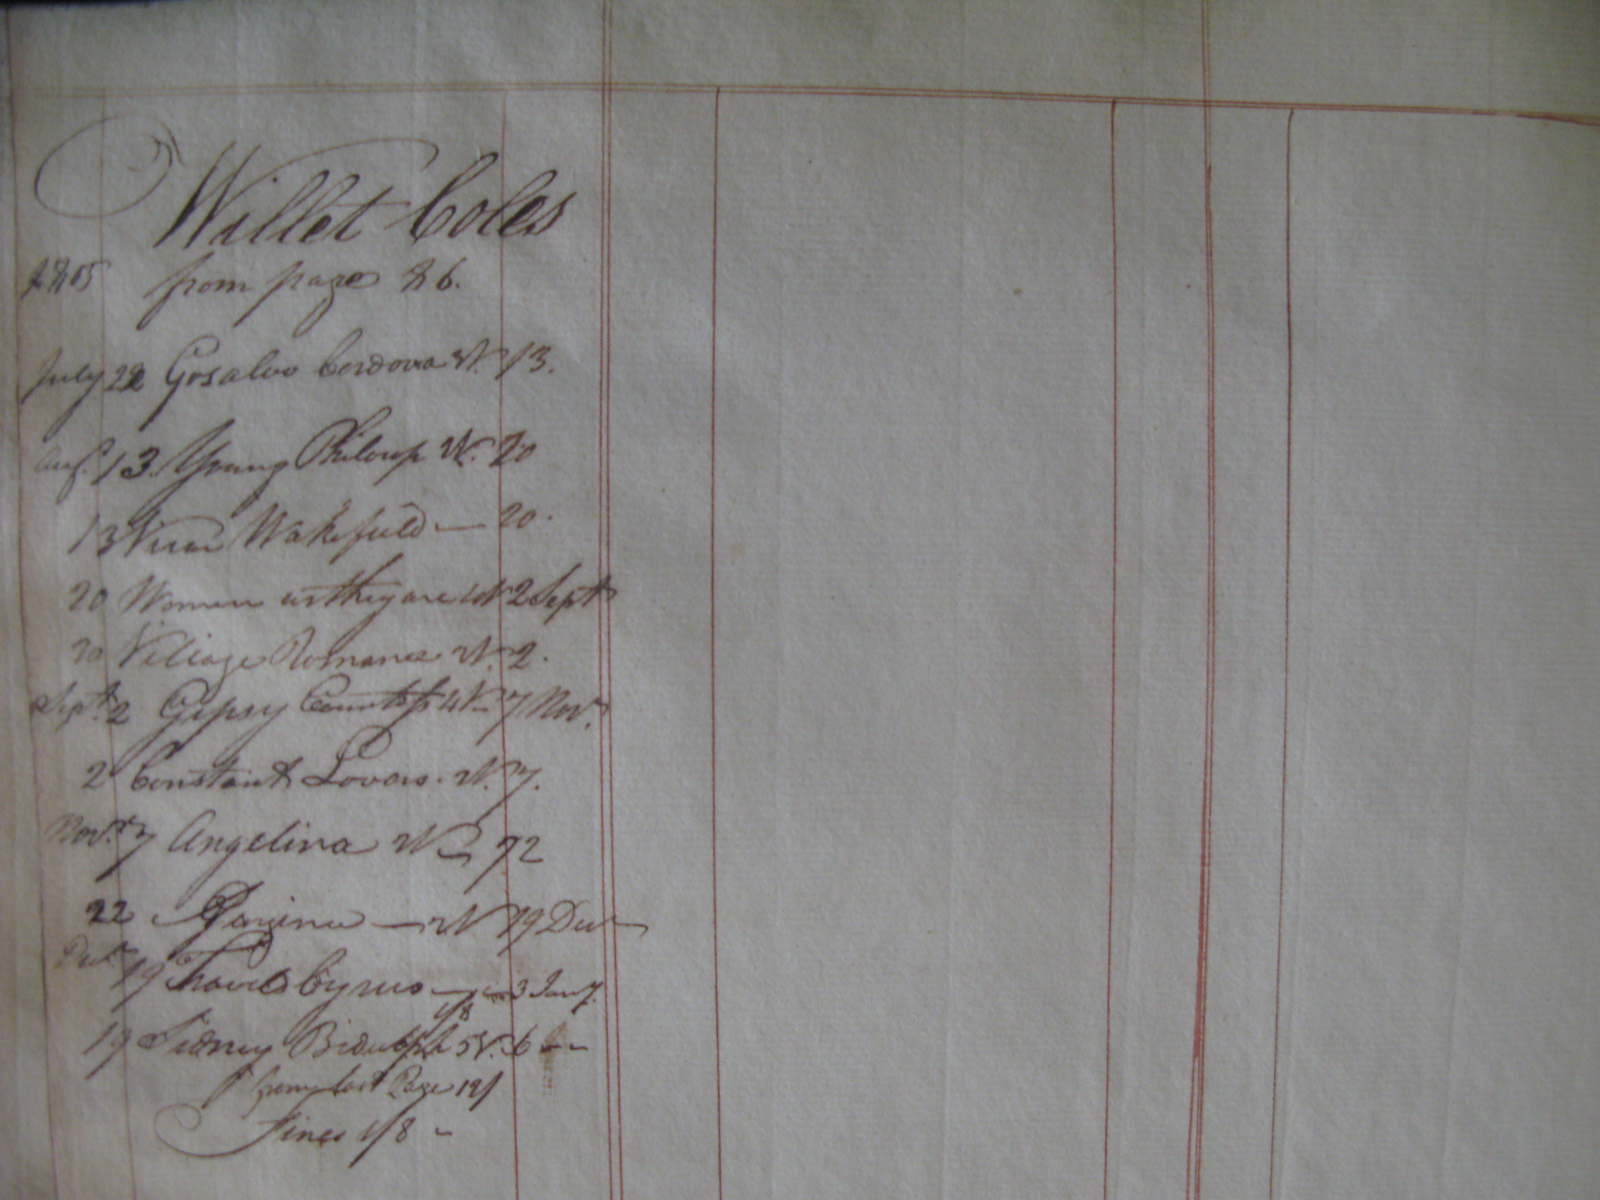 Willet Coles
1805 from page 86.
July 22 Gosalvo Cordova 2V. 13.
Aug.t 13. Young Philosop 2V. 20
13 Vicar Wakefield — 20.
20 Women as they are 4V 2 Sept
20 Village Romance 2V. 2.
Sept. 2 Gipsy Countess 4V 7 Nov.
2 Constant Lovers. 2V. 7.
Nov. 7 Angelina 2V — 22
22 — 2V 19 Dec
Dec 19 Travels Cyrus — 3 Jany.
1/8
19 Sidney Bidulph 5V. 6 --
from last Page 12/
Fines 1/8 -